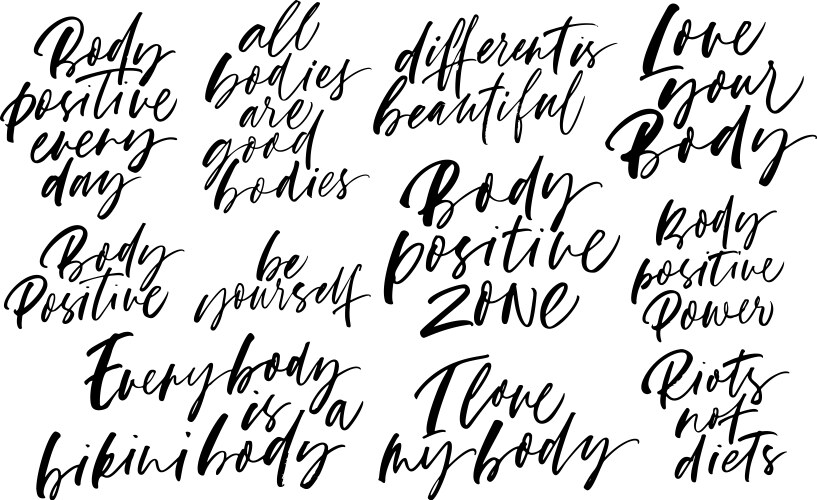 Body
positive
every
day
all
bodies
are
good
bodies
different is
beautiful
Love
your
Body
Body
Positive
be
yourself
Body
positive
ZONE
Body
positive
Power
Everybody
is a
bikini body
I love
my body
Riots
not
diets